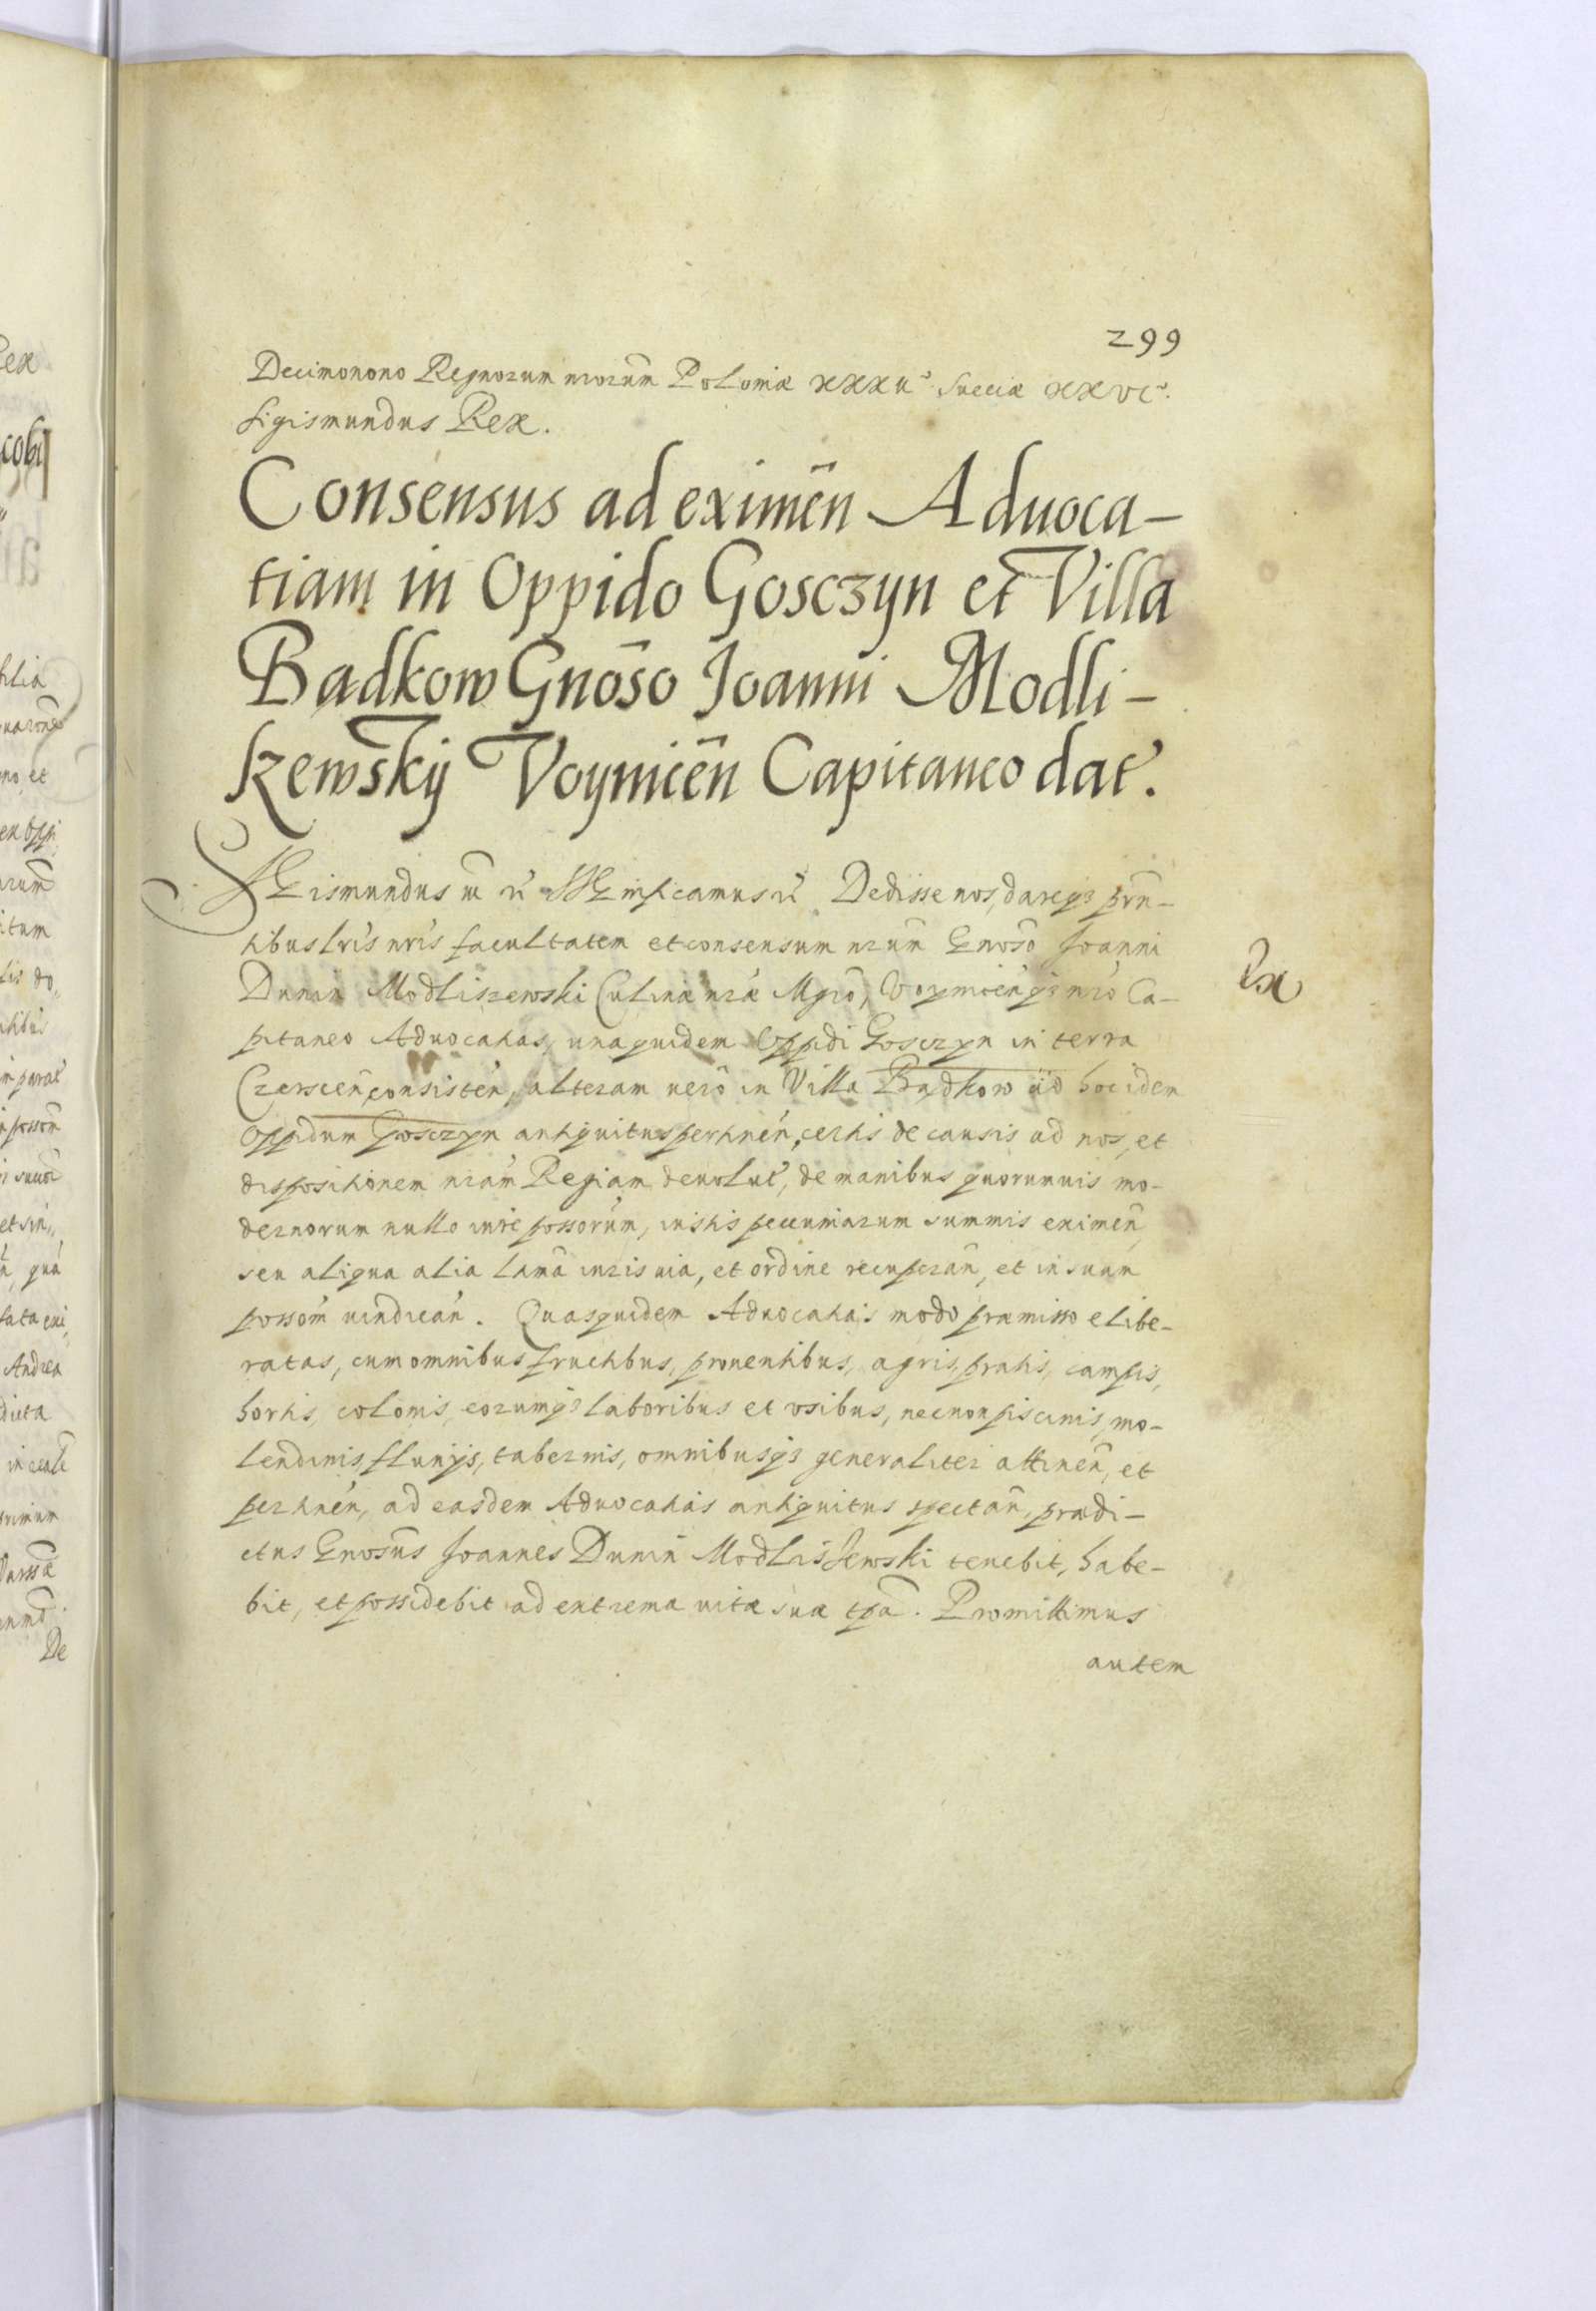 299
Decimonono Regnorum nrorum Poloniæ xxxii° Sueciæ xxvi°.
Sigismundus Rex.
Consensus ad eximēn Aduoca-
tiam in Oppido Gosczyn et Villa
Badkow Gnōso Joanni Modli-
szewskij Voynicēn Capitaneo dat.
Sigismundus Significamus Dedisse nos, dareq3 prn̄-
tibus lrīs nrīs facultatem et consensum nrum Gnoso Joanni
Dunin Modliszewski Culinæ nræ Mgrō, Voynicēnq3 nrō Ca-
pitaneo Aduocatias, una quidem Oppidi Gosczyn in terra
Czerscēn consistēn, alteram uero in Villa Badkow ad hoc idem
Oppidum Gosczyn antiquitus pertinēn, certis de causis ad nos, et
dispositionem nrām Regiam deuolut, de manibus quorumuis mo-
dernorum nullo iure possorum, iustis pecuniarum summis eximēn,
seu aliqua alia lamā iuris uia, et ordine recuperān, et in suam
possom̄ uindicān. Quasquidem Aduocatias modo præmisso elibe-
ratas, cum omnibus fructibus, prouentibus, agris, pratis, campis,
hortis, colonis, eorumq3 laboribus et vsibus, necnon piscinis, mo-
lendinis, fluuijs, tabernis, omnibusq3 generaliter attinēn, et
pertinēn, ad easdem Aduocatias antiquitus spectān, prædi-
ctus Gnosus Joannes Dunin Modliszewski tenebit, habe-
bit, et possidebit ad extrema uitæ suæ tpā. Promittimus
autem